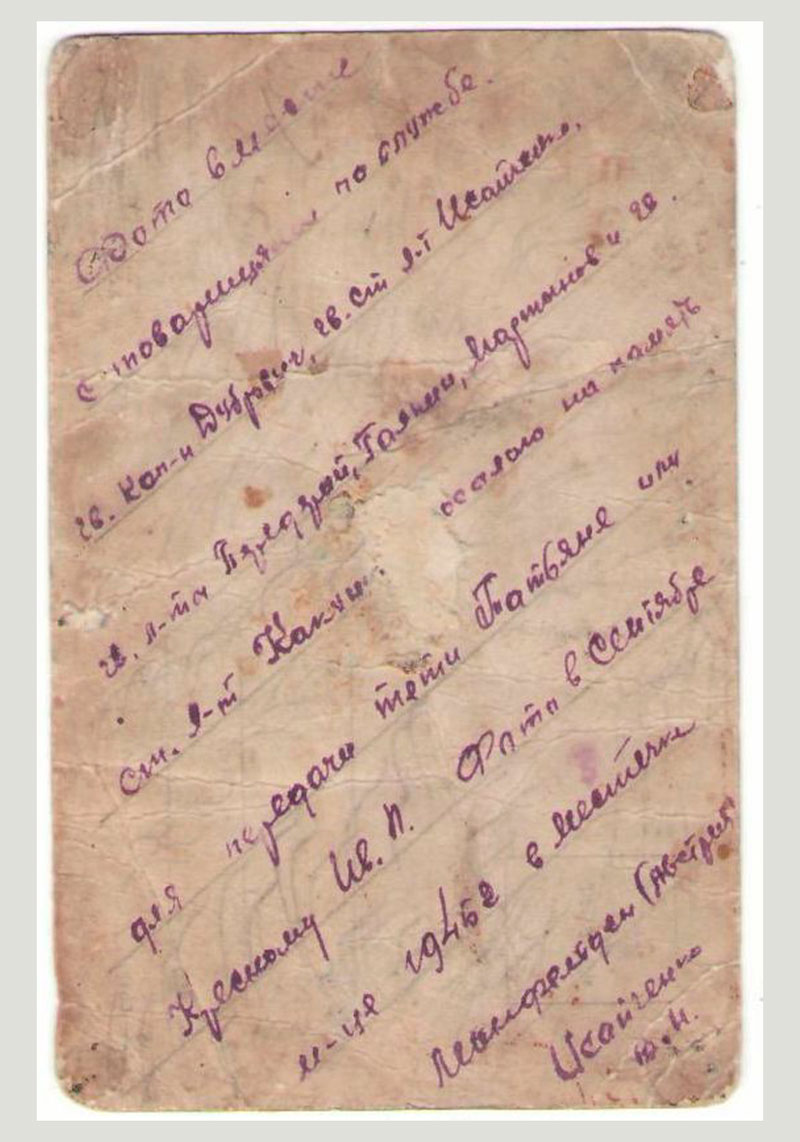 Фото вместе
с товарищами по службе.
гв. Кап-н Дубрвич, гв. ст л-т Исайченко,
гв. л-ты Галкин, Мартынов и гв.
ст. л-т осалою на память
для передачи тети Татьяне или
Кресному Ив. П. Фото в Сентябре
м-це 1945г в местечке
(Австрия)
Исайченко